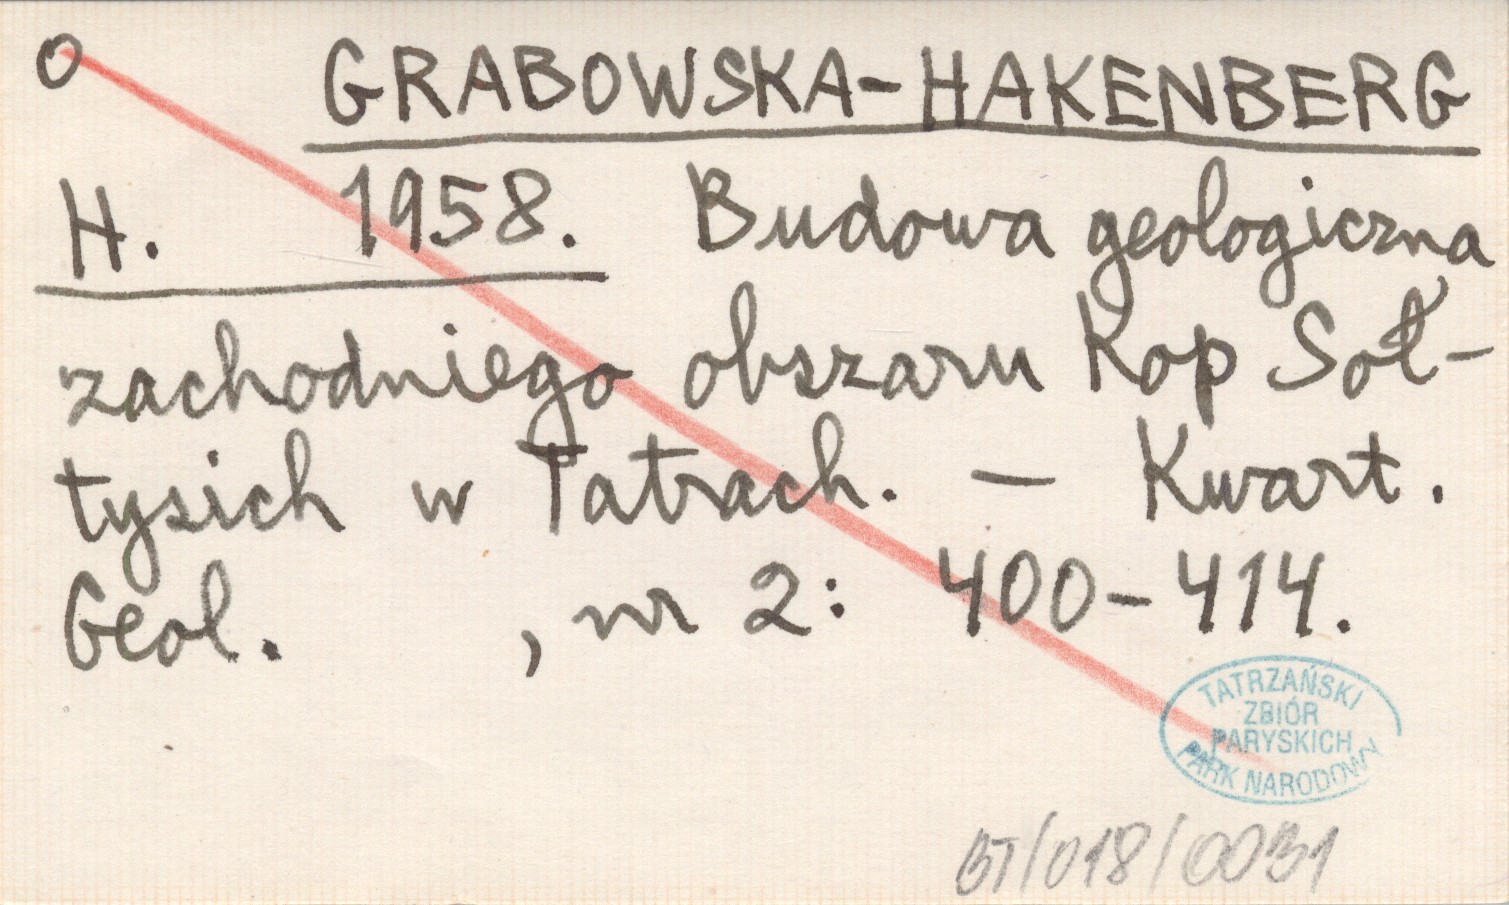 O GRABOWSKA-HAKENBERG
H. 1958. Budowa geologiczna
zachodniego obszaru Kop Soł-
tysich w Tatrach. — Kwart.
Geol. , nr 2: 400-414.
TATRZAŃSKI
ZBIÓR
PARYSKICH
PARK NARODOWY
BT/018/0031